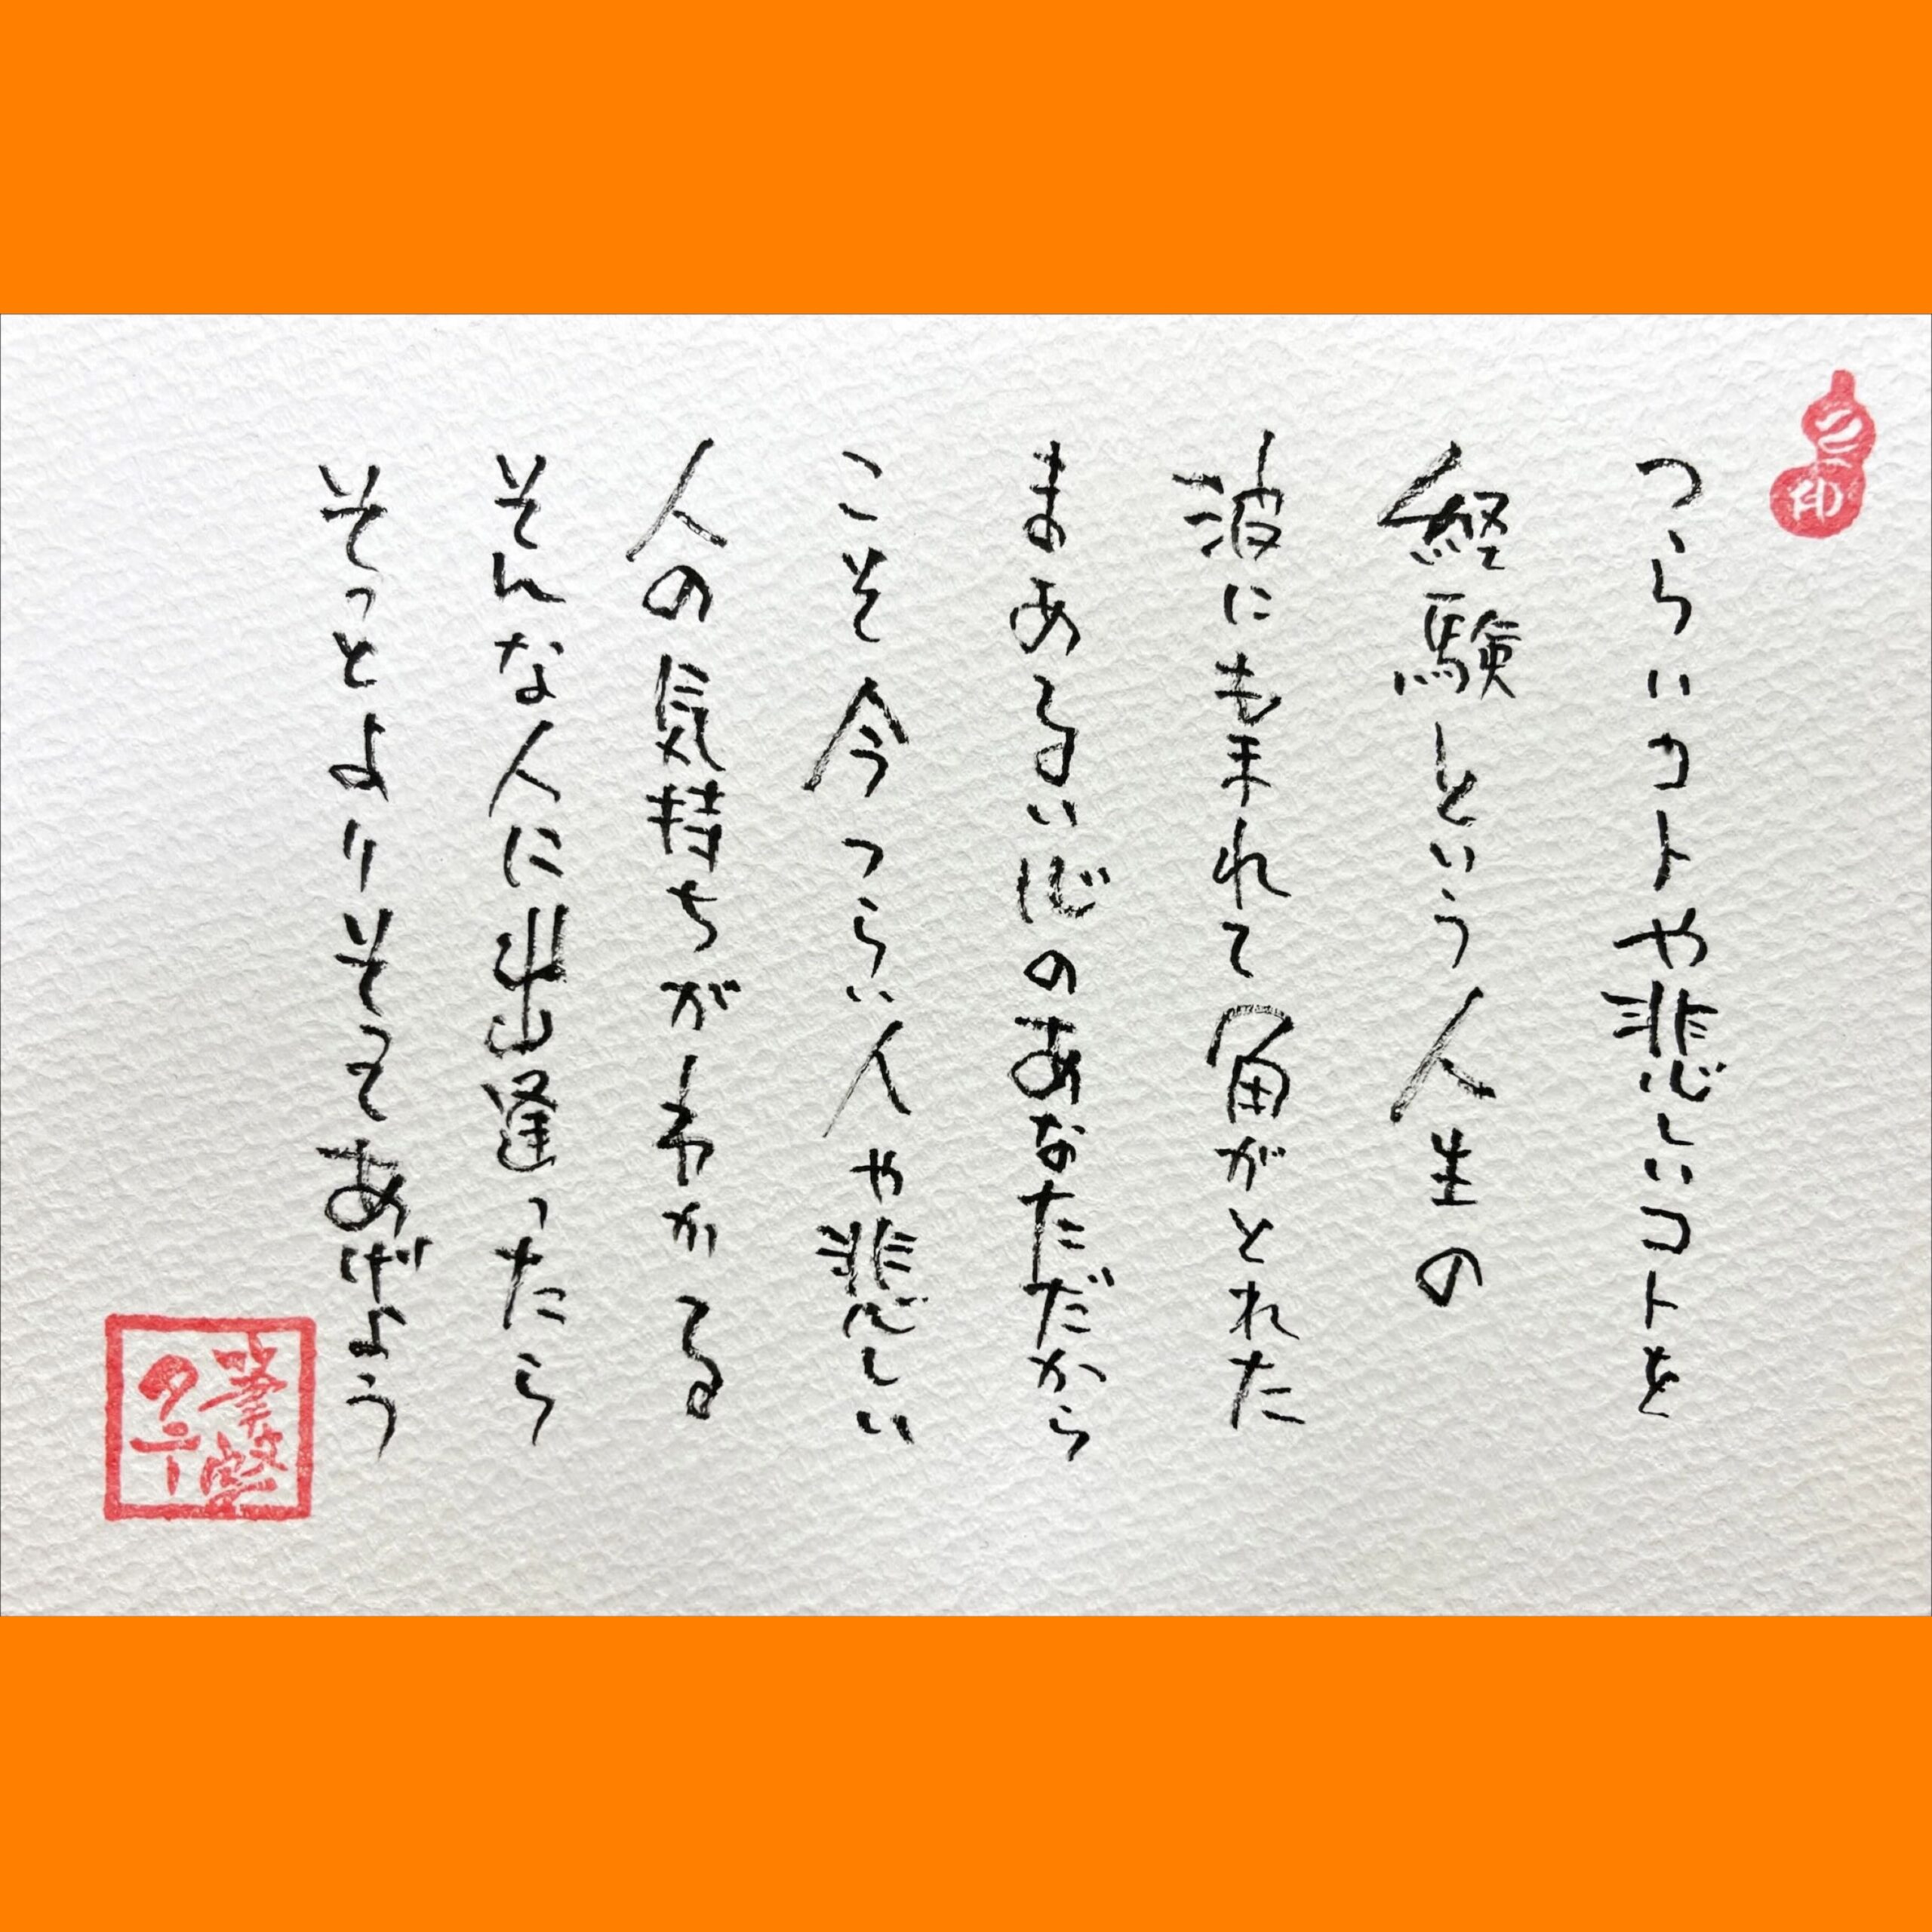 つらいコトや悲しいコトを
経験という人生の
波にもまれて角がとれた
まあるい心のあなただから
こそ今つらい人や悲しい
人の気持ちがわかる
そんな人に出逢ったら
そっとよりそってあげよう